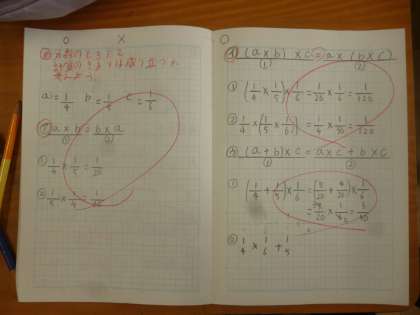 ○ ×
分数のときでも
計算のきまりは成り立つか
考えよう。
a=1/4 b=1/5 c=1/6
㋐ a×b=b×a
① ②
① 1/4×1/5=1/20
② 1/5×1/4=1/20
○
(a×b)×c=a×(b×c)
① ②
① (1/4×1/5)×1/6=1/20×1/6=1/120
② 1/4×(1/5×1/6)=1/4×1/30=1/120
(a+b)×c=a×c+b×c
① ②
① (1/4+1/5)×1/6=(5/20+4/20)×1/6
=9/20×1/6=3/40
② 1/4×1/6+1/5